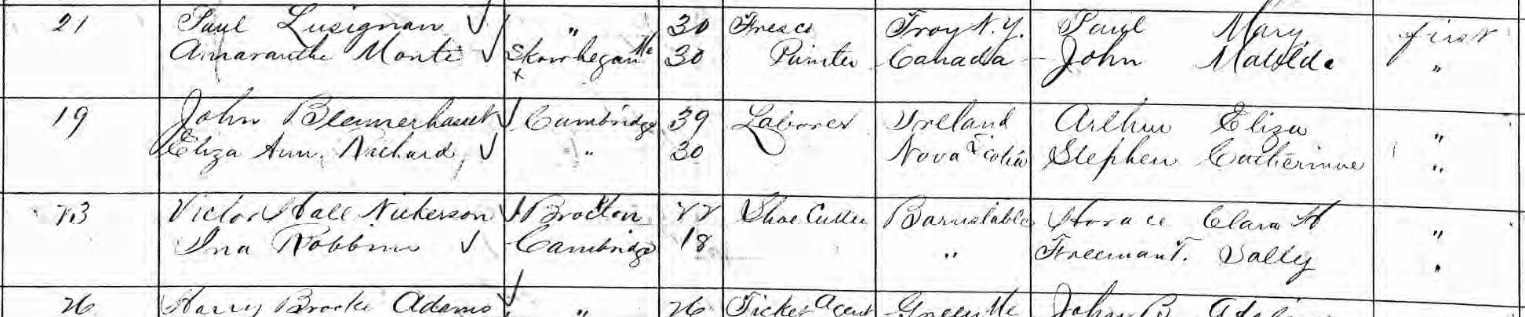 21 Paul Lusignan √ " 30 Fresco Troy N.Y. Paul Mary first
Amaranthe Monte √ Skowhegan Me 30 Painter Canada John Matilda "
19 John Blennerhasset √ Cambridge 39 Laborer Ireland Arthur Eliza "
Eliza Ann Richard √ " 30 Nova Scotia Stephen Catherine "
23 Victor Hall Nickerson √ Brocton 22 Shoe Cutter Barnstable Horace Clara H "
Ina Robbins √ Cambridge 18 " Freeman T. Sally "
26 Harry Brooks Adams √ " 26 Ticket Agent Me John B